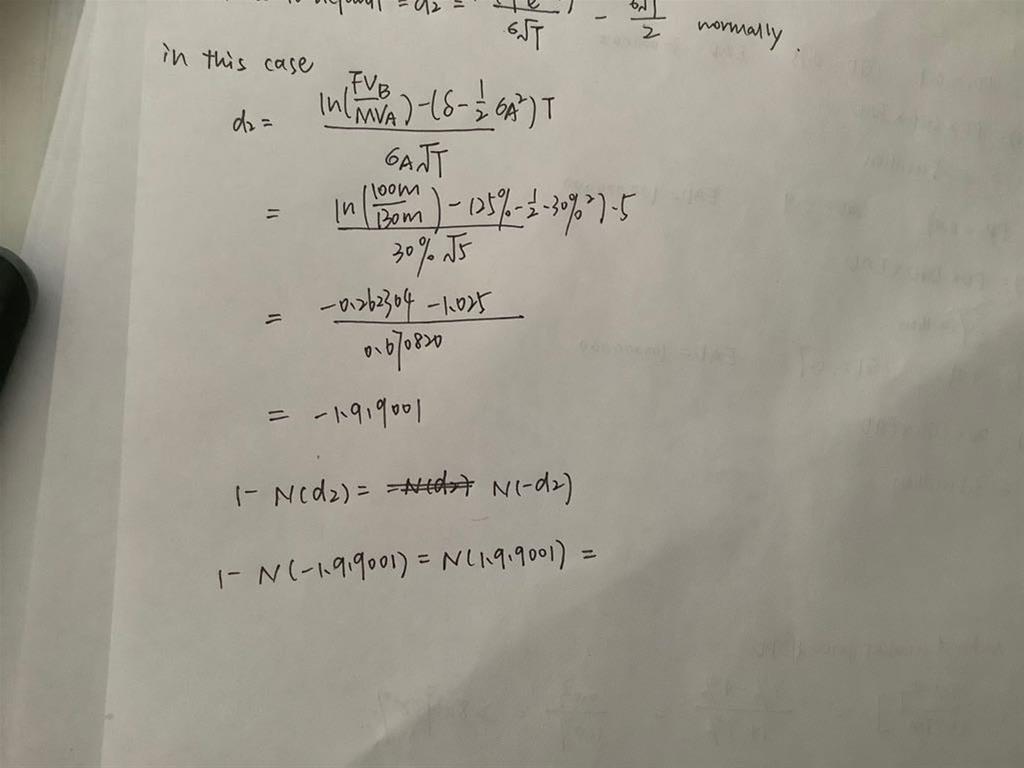 = d2 = - 6√T/2 normally.
6√T
in this case
d2 = (ln(FVB/MVA) - (δ - 1/2 6A²)T) / (6A√T)
= (ln(100m/130m) - (25% - 1/2 - 30%²) · 5) / (30% √5)
= (-0.262304 - 1.025) / 0.670820
= -1.9.9001
1 - N(d2) = N(-d2)
1 - N(-1.9.9001) = N(1.9.9001) =